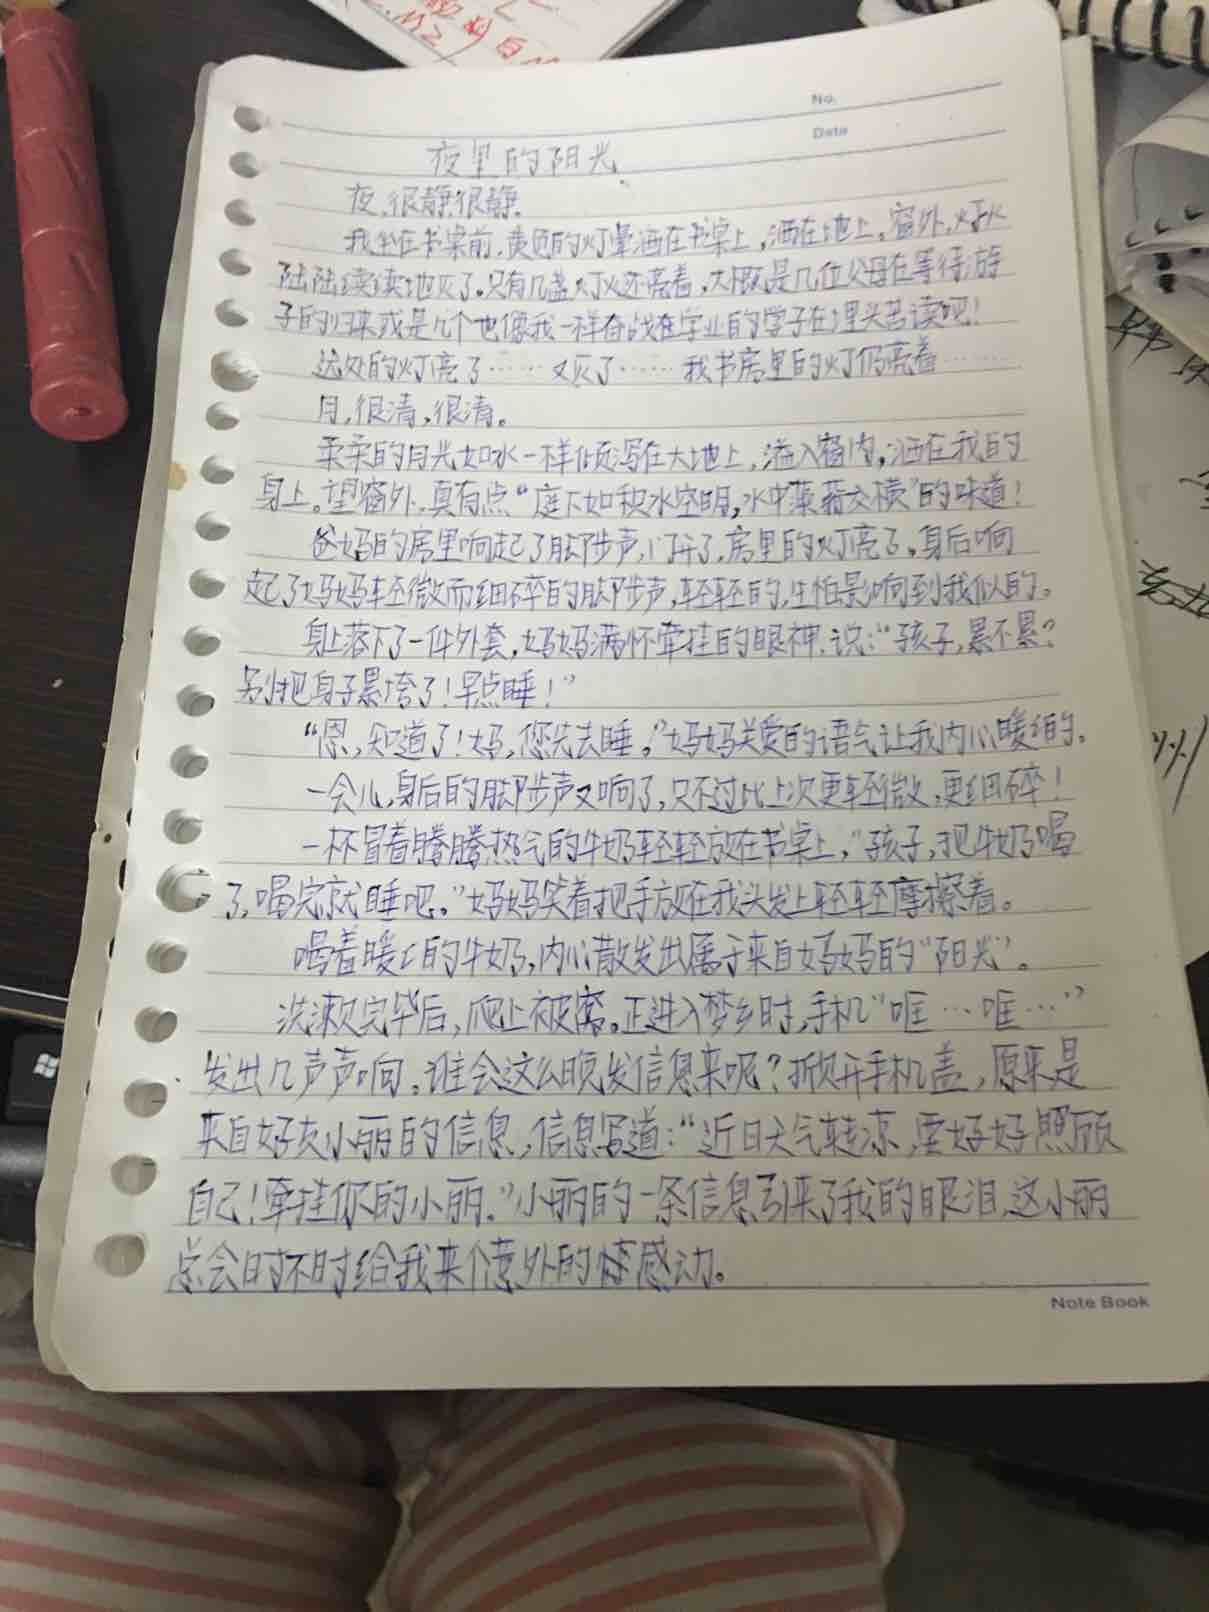 No.
Date
夜里的阳光
夜,很静,很静。
我坐在书桌前,黄色的灯晕洒在书桌上,洒在地上。窗外,灯火
陆陆续续地灭了。只有几盏灯火还亮着,大概是几位父母在等待游
子的归来或是几个也像我一样奋战在学业的学子在埋头苦读吧!
远处的灯亮了……又灭了……我书房里的灯仍亮着……
月,很清,很清。
柔柔的月光如水一样倾泻在大地上,溢入窗内,洒在我的
身上。望窗外,真有点“庭下如积水空明,水中藻荇交横”的味道!
爸妈的房里响起了脚步声,门开了,房里的灯亮了。身后响
起了妈妈轻微而细碎的脚步声,轻轻的,生怕影响到我似的。
身上落下了一件外套,妈妈满怀牵挂的眼神,说:“孩子,累不累?
别把身子累垮了!早点睡!”
“恩,知道了!妈,您先去睡。”妈妈关爱的语气让我内心暖暖的。
一会儿,身后的脚步声又响了,只不过比上次更轻微,更细碎!
一杯冒着腾腾热气的牛奶轻轻放在书桌上,“孩子,把牛奶喝
了,喝完就睡吧。”妈妈笑着把手放在我头发上轻轻摩擦着。
喝着暖暖的牛奶,内心散发出属于来自妈妈的“阳光”。
洗漱完毕后,爬上被窝。正进入梦乡时,手机“哐…哐…”
发出几声声响。谁会这么晚发信息来呢?掀开手机盖,原来是
来自好友小丽的信息,信息写道:“近日天气转凉,要好好照顾
自己!牵挂你的小丽。”小丽的一条信息引来了我的眼泪,这小丽
总会时不时给我来个意外的感动。
Note Book